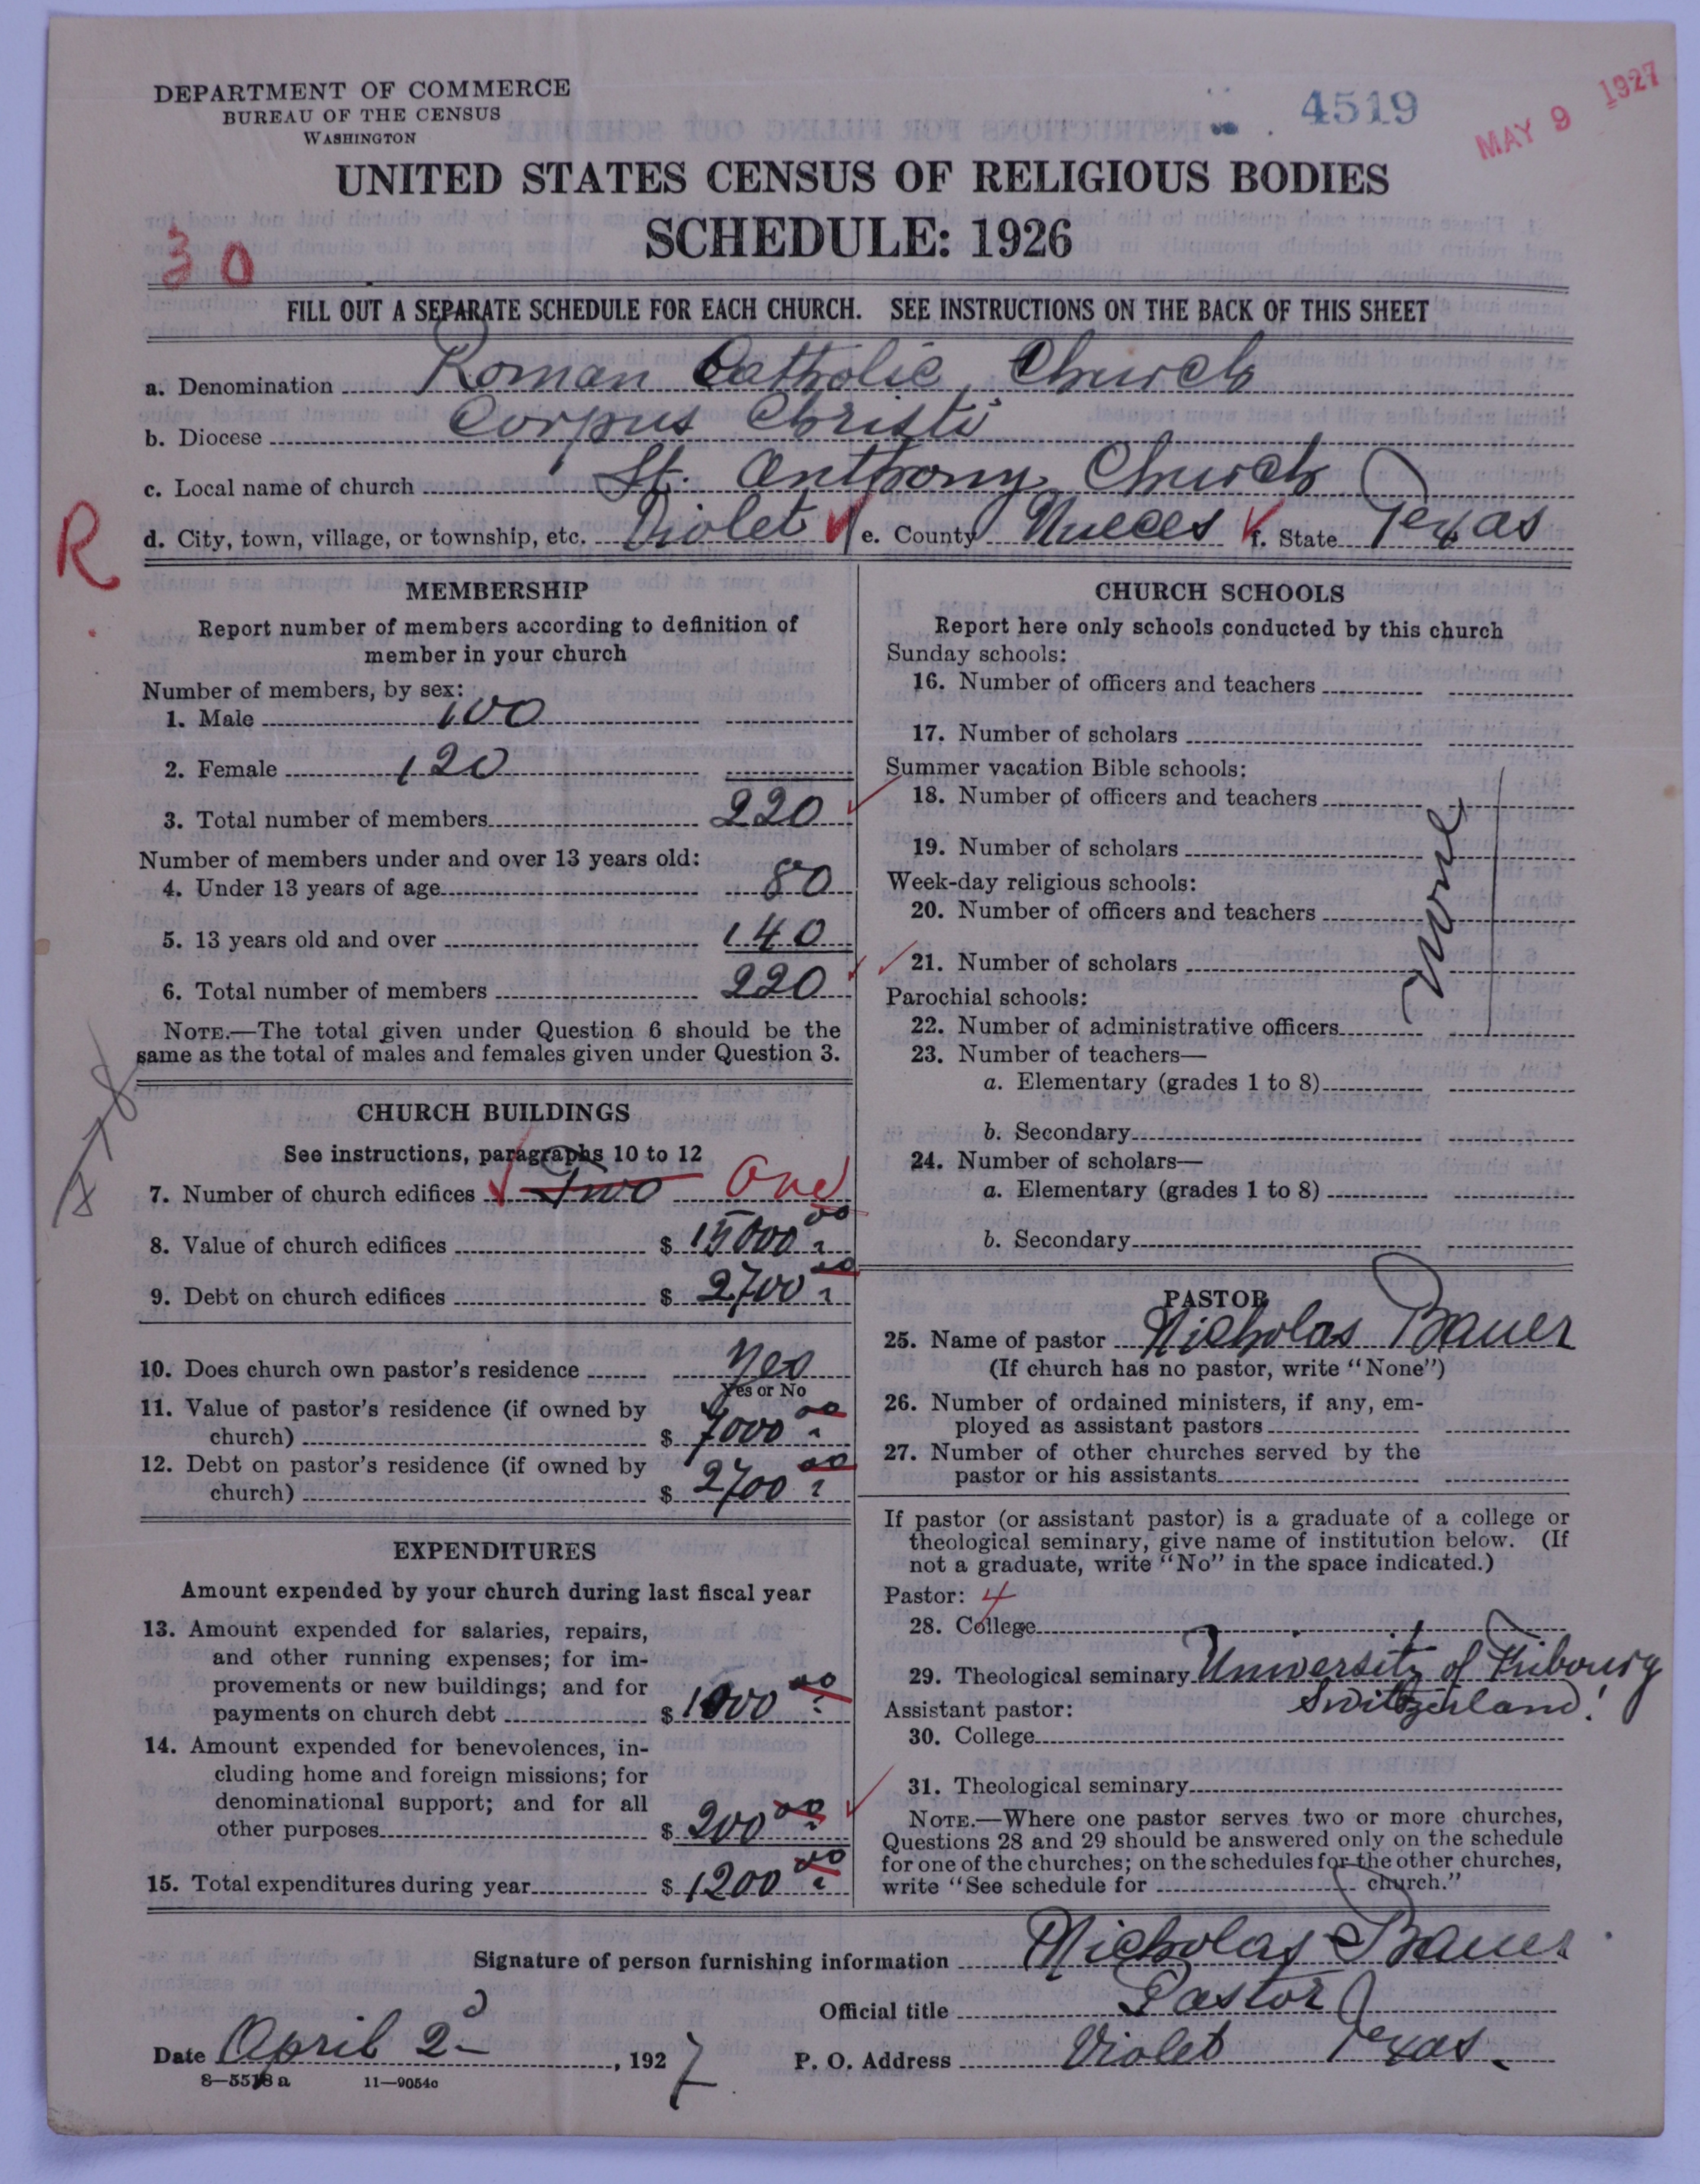 DEPARTMENT OF COMMERCE
BUREAU OF THE CENSUS
WASHINGTON
4519
MAY 9 1927
UNITED STATES CENSUS OF RELIGIOUS BODIES
SCHEDULE: 1926
30
FILL OUT A SEPARATE SCHEDULE FOR EACH CHURCH. SEE INSTRUCTIONS ON THE BACK OF THIS SHEET
a. Denomination Roman Catholic Church
b. Diocese Corpus Christi
c. Local name of church St. Anthony Church
R
d. City, town, village, or township, etc. Violet e. County Nueces f. State Texas
MEMBERSHIP
Report number of members according to definition of
member in your church
Number of members, by sex:
1. Male 100
2. Female 120
3. Total number of members 220
Number of members under and over 13 years old:
4. Under 13 years of age 80
5. 13 years old and over 140
6. Total number of members 220
NOTE.—The total given under Question 6 should be the
same as the total of males and females given under Question 3.
CHURCH BUILDINGS
See instructions, paragraphs 10 to 12
7. Number of church edifices Two One
8. Value of church edifices $ 15000 00
9. Debt on church edifices $ 2700 00
10. Does church own pastor's residence Yes
Yes or No
11. Value of pastor's residence (if owned by
church) $ 7000 00
12. Debt on pastor's residence (if owned by
church) $ 2700 00
EXPENDITURES
Amount expended by your church during last fiscal year
13. Amount expended for salaries, repairs,
and other running expenses; for im-
provements or new buildings; and for
payments on church debt $ 1000 00
14. Amount expended for benevolences, in-
cluding home and foreign missions; for
denominational support; and for all
other purposes $ 200 00
15. Total expenditures during year $ 1200 00
CHURCH SCHOOLS
Report here only schools conducted by this church
Sunday schools:
16. Number of officers and teachers
17. Number of scholars
Summer vacation Bible schools:
18. Number of officers and teachers
19. Number of scholars
None
Week-day religious schools:
20. Number of officers and teachers
21. Number of scholars
Parochial schools:
22. Number of administrative officers
23. Number of teachers—
a. Elementary (grades 1 to 8)
b. Secondary
24. Number of scholars—
a. Elementary (grades 1 to 8)
b. Secondary
PASTOR
25. Name of pastor Nicholas Bauer
(If church has no pastor, write "None")
26. Number of ordained ministers, if any, em-
ployed as assistant pastors
27. Number of other churches served by the
pastor or his assistants
If pastor (or assistant pastor) is a graduate of a college or
theological seminary, give name of institution below. (If
not a graduate, write "No" in the space indicated.)
Pastor: 4
28. College
29. Theological seminary University of Fribourg
Switzerland!
Assistant pastor:
30. College
31. Theological seminary
NOTE.—Where one pastor serves two or more churches,
Questions 28 and 29 should be answered only on the schedule
for one of the churches; on the schedules for the other churches,
write "See schedule for church."
Signature of person furnishing information Nicholas Bauer
Official title Pastor
Date April 2d, 1927 P. O. Address Violet Texas.
8—5518 a 11—9054c